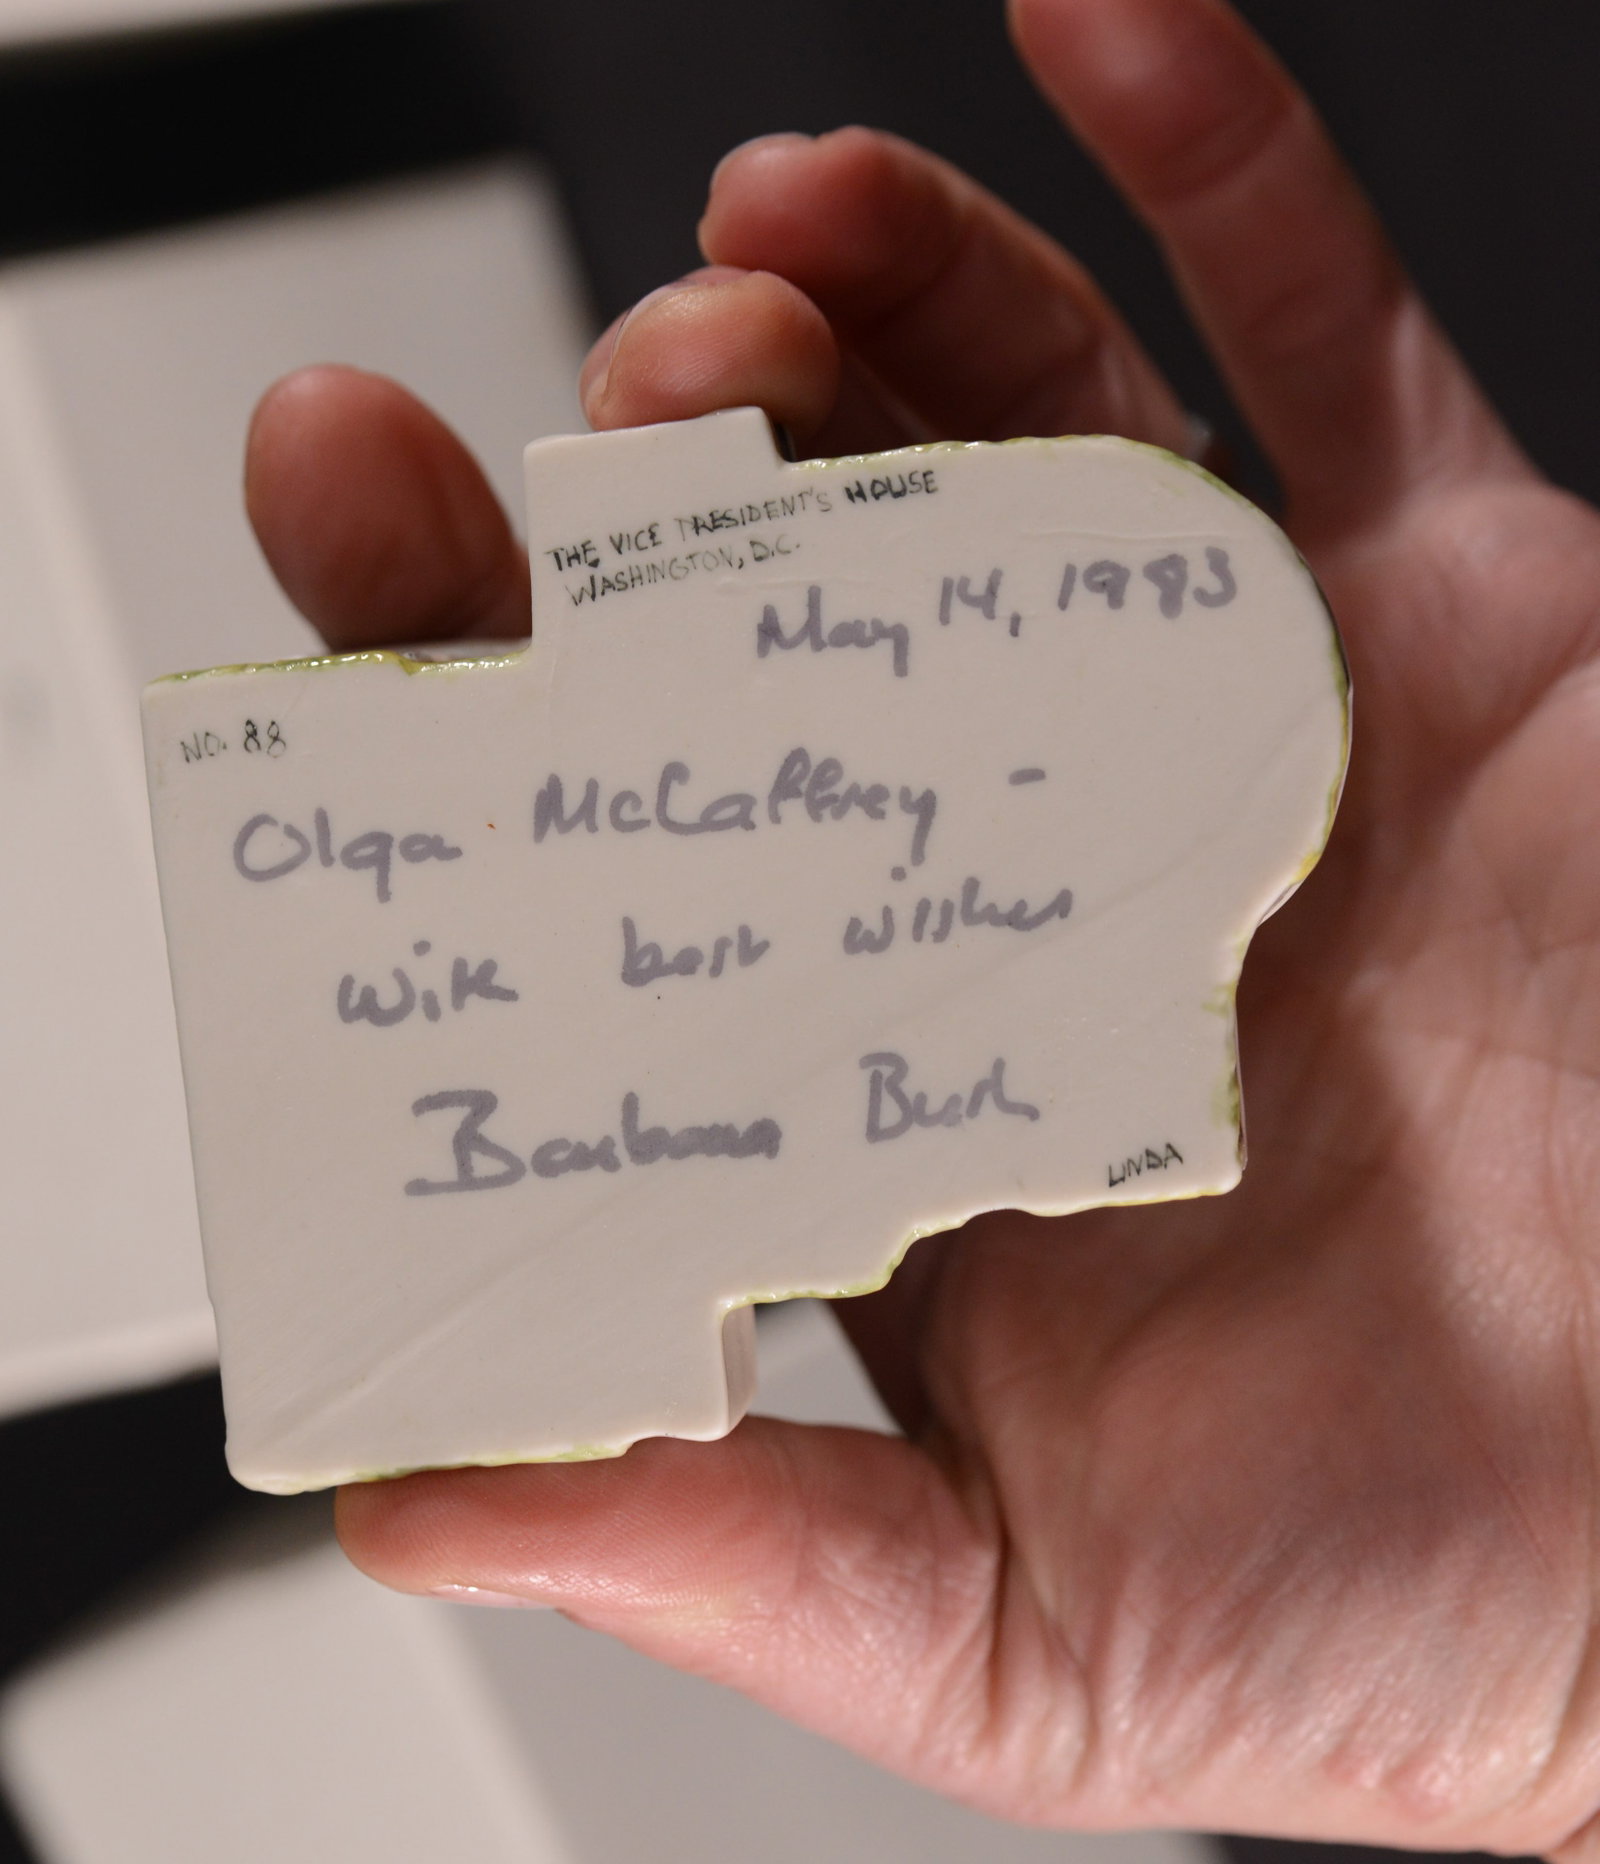 THE VICE PRESIDENT'S HOUSE
WASHINGTON, D.C.
May 14, 1983
NO. 88
Olga McCaffrey -
With best wishes
Barbara Bush
LINDA